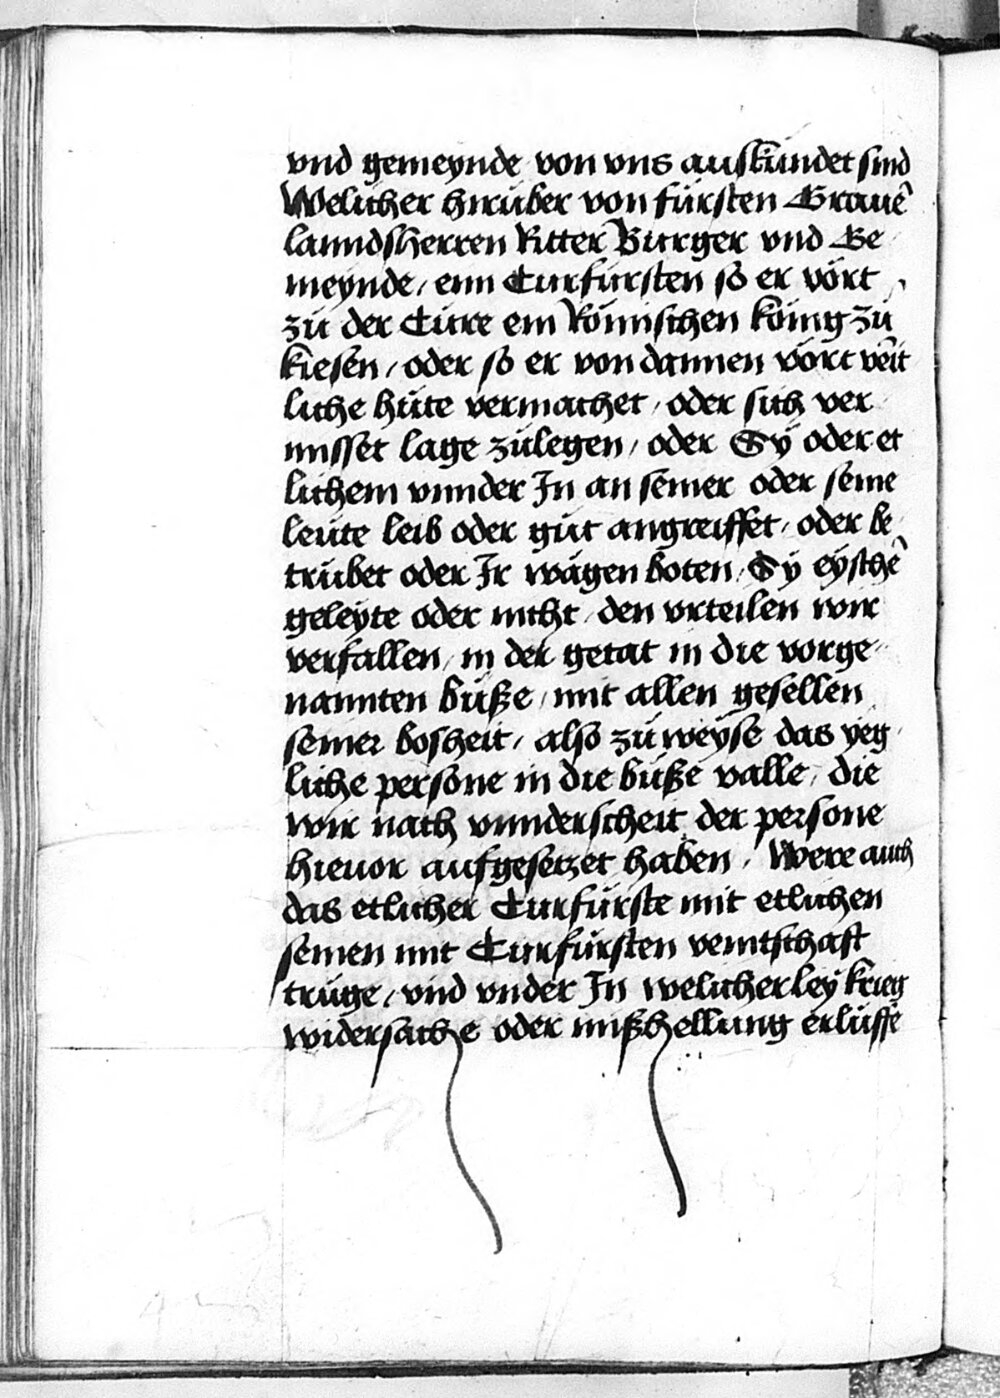 vnd gemeynde von vns auskundet sind
Welicher hirüber von fürsten Grauē
lanndsherren Ritter Burger vnd Ge
meynde / ein Curfürsten so er vört
zü der Cüre ein Römischen könig zü
kiesen / oder so er von dannen vört
liche hüte vermachet / oder sich ver
misset lage zülegen / oder Sÿ oder et
lichem vnnder In an seiner oder seine
leüte leib oder güt angreiffet / oder be
trübet oder Ir wägen boten / Sÿ eyschē
geleyte oder nicht / den vrteilen wir
verfallen / in der getat in die vorge
nannten büße / mit allen gesellen
seiner bosheit / also zü weÿse das yeg
liche persone in die büße valle / die
wir nach vnnderscheit der persone
hieuor aufgesetzet haben / Were auch
das etlicher Curfürste mit etlichen
seinen mit Curfürsten veintschaft
trüge / vnd vnder In welicherleÿ krieg
widersache oder mißhellung erlüffē